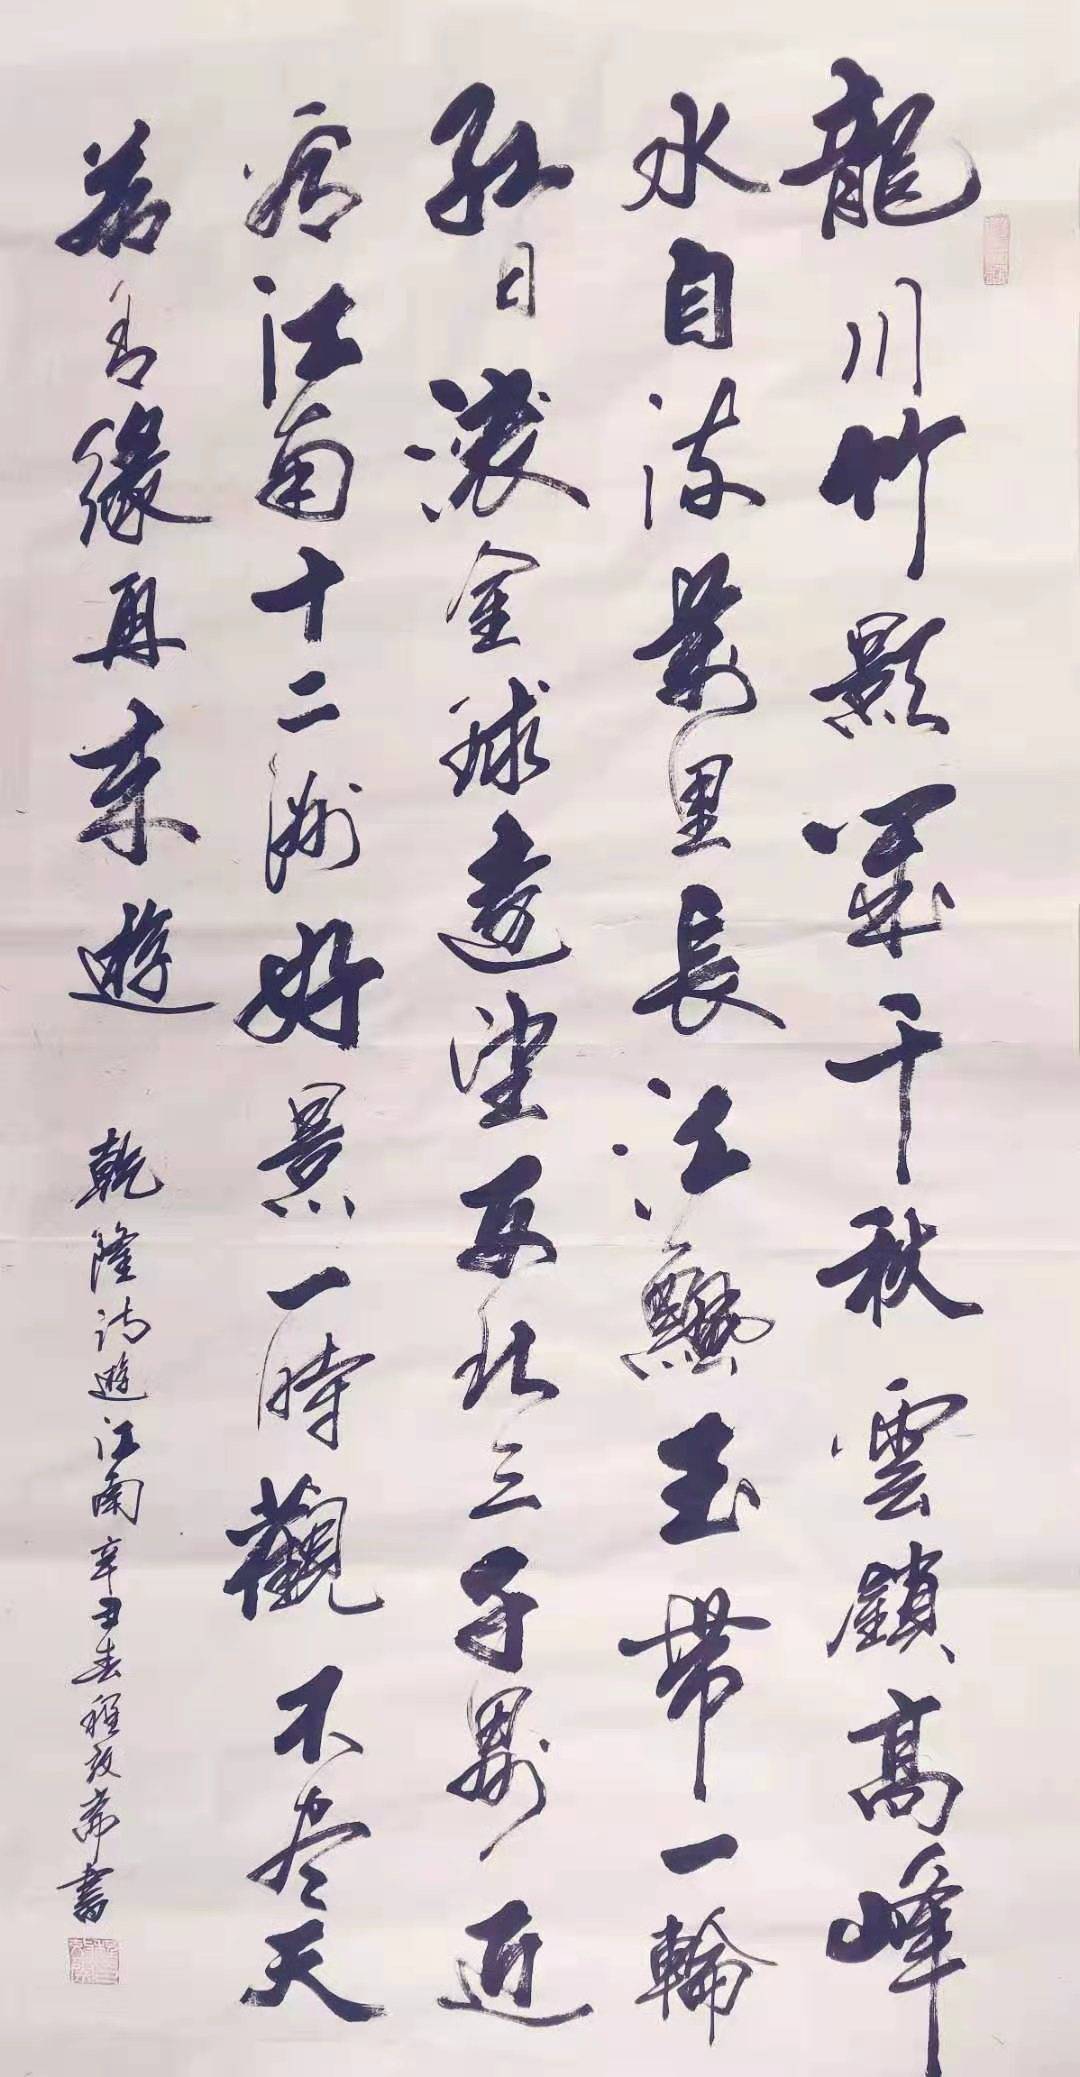 龍川竹影几千秋雲鎖高峰
水自流萬里長江飄玉帶一輪
紅日滾金球遠望西北三千界近
看江南十二洲好景一時觀不尽天
若有緣再來遊
乾隆詩遊江南辛丑春程政齋書